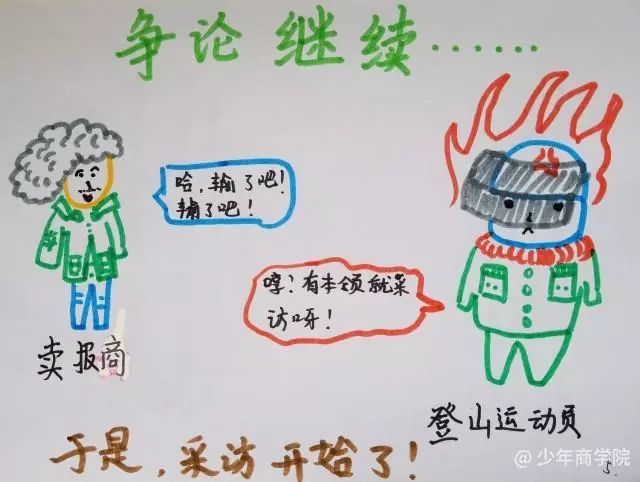 争论继续······
哈,输了吧!
输了吧!
哼!有本领就采
访呀!
卖报商
登山运动员
于是,采访开始了!
5.
@少年商学院